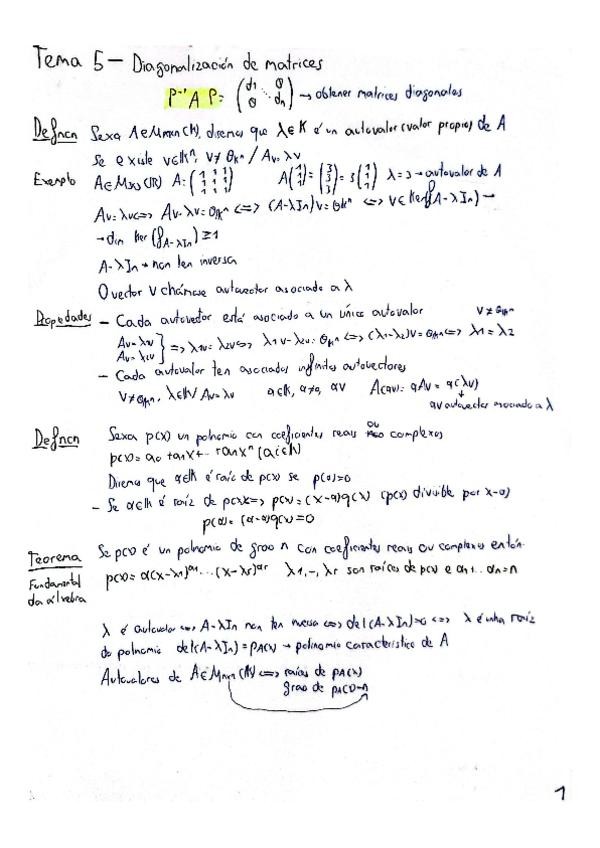 Tema 5 - Diagonalización de matrices
P⁻¹AP = (d1 0 ⋱ 0 dn) → obtener matrices diagonales
Defncn Sexa A∈Mnxn(K), diremos que λ∈K é un autovalor (valor propio) de A
Se existe v∈Kⁿ, v≠θKⁿ / Av=λv
Exemplo A∈M3x3(R) A=(1 1 1 1 1 1 1 1 1) A(1 1 1)=(3 3 3)=3(1 1 1) λ=3→autovalor de A
Av=λv<=> Av-λv=θKⁿ <=> (A-λIn)v=θKⁿ <=> v∈Ker(fA-λIn)→
→dim Ker(fA-λIn)≥1
A-λIn→non ten inversa
O vector v chámase autovector asociado a λ
Propiedades - Cada autovector está asociado a un único autovalor v≠θKⁿ
Av=λ1v
Av=λ2v } => λ1v=λ2v<=> λ1v-λ2v=θKⁿ<=>(λ1-λ2)v=θKⁿ<=> λ1=λ2
- Cada autovalor ten asociados infinitos autovectores
v≠θKⁿ, λ∈K/ Av=λv α∈K, α≠0, αv A(αv)=αAv=α(λv)
αv autovector asociado a λ
Defncn Sexa p(x) un polnomio con coeficientes reais ou complexos
p(x)=a0+a1x+...+anxⁿ (ai∈K)
Direma que α∈K é raíz de p(x) se p(α)=0
- Se α∈K é raíz de p(x)<=> p(x)=(x-α)q(x) (p(x) divisible por x-α)
p(α)=(α-α)q(α)=0
Teorema Fundamental da álxebra
Se p(x) é un polnomio de grao n con coeficientes reais ou complexos entón
p(x)=α(x-λ1)^α1...(x-λr)^αr λ1,-,λr son raíces de p(x) e
λ é autovalor <=> A-λIn non ten inversa <=> det(A-λIn)=0 <=> λ é unha raíz
do polnomio det(A-λIn)=pA(λ)→polinomio característico de A
Autovalores de A∈Mnxn(K)<=> raíces de pA(λ)
grao de pA(λ)=n
1